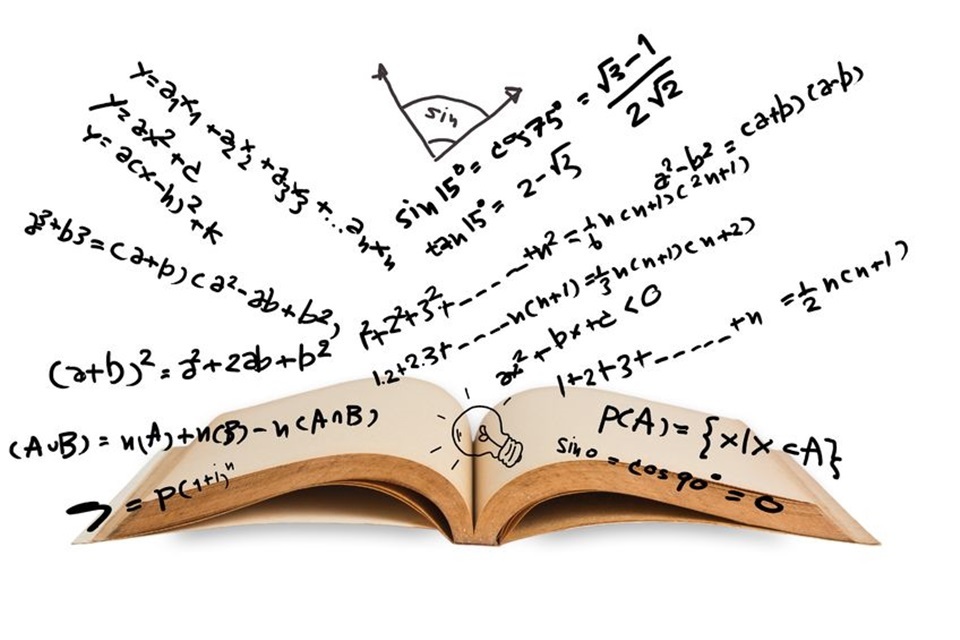 Y=a₁x₁+a₂x₂+a₃x₃+...aₙxₙ
Y=ax²+c
Y=a(x-h)²+k
a³+b3=(a+b)(a²-ab+b²)
(a+b)²=a²+2ab+b²
(A∪B)=n(A)+n(B)-n(A∩B)
=P(1+i)ⁿ
sin
sin15°=cos75°=√3-1/2√2
tan15°=2-√3
a²-b²=(a+b)(a-b)
1²+2²+3²+-----+n²=1/6n(n+1)(2n+1)
1.2+2.3+-----n(n+1)=1/3n(n+1)(n+2)
ax²+bx+c<0
1+2+3+-----+n =1/2n(n+1)
P(A)={x/x⊂A}
sin0=cos90°=0